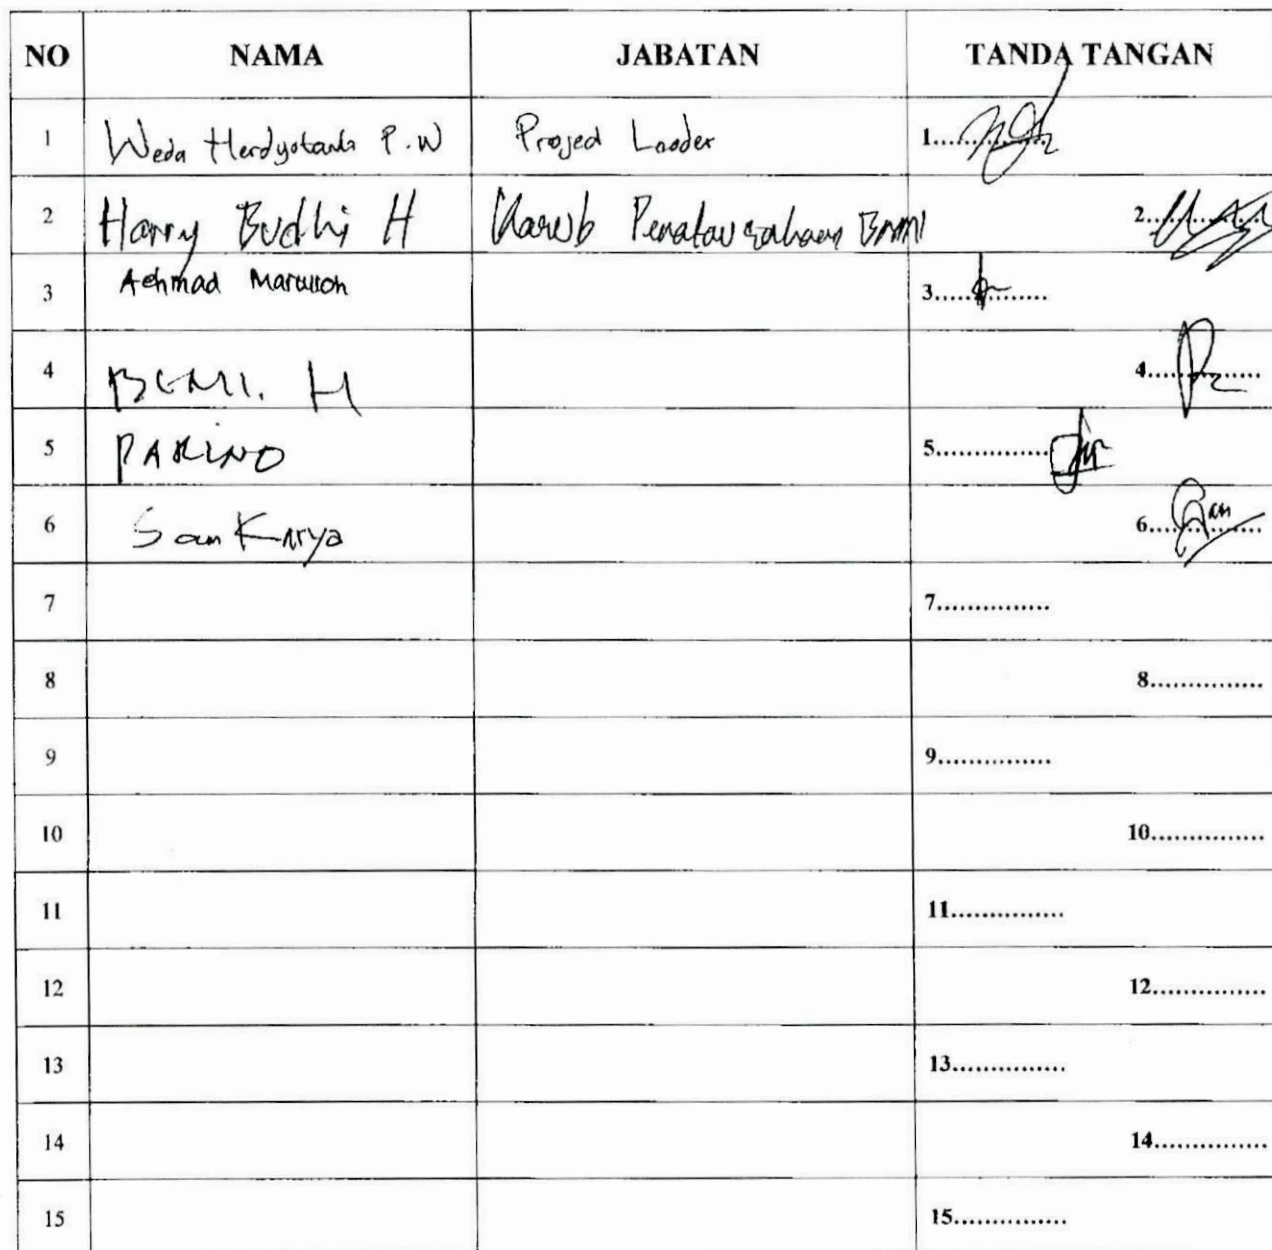 NO NAMA JABATAN TANDA TANGAN
1 Weda Herdyotanto P.W Projed Leader 1...............
2 Harry Budhi H Penatausahaan BMN 2...............
3 Achmad 3...............
4 H 4...............
5 PARINO 5...............
6 San Karya 6...............
7 7...............
8 8...............
9 9...............
10 10...............
11 11...............
12 12...............
13 13...............
14 14...............
15 15...............